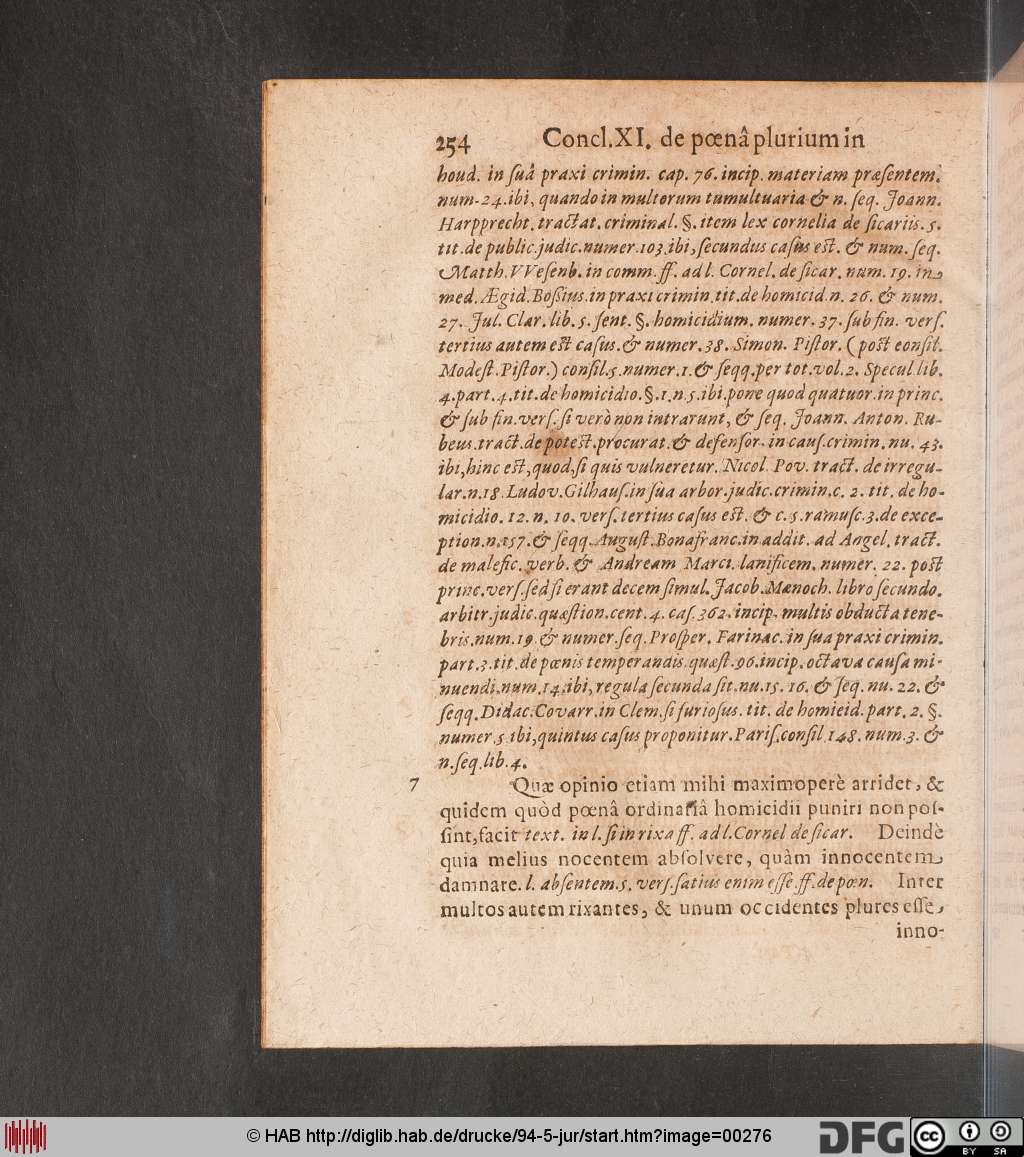 254 Concl. XI. de pœnâ plurium in
houd. in ſuâ praxi crimin. cap. 76. incip. materiam præſentem.
num. 24. ibi, quando in multorum tumultuaria & n. ſeq. Joann.
Harpprecht. tractat. criminal. §. item lex cornelia de ſicariis. 5.
tit. de public. judic. numer. 103. ibi, ſecundus caſus est. & num. ſeq.
Matth. VVeſenb. in comm. ff. ad l. Cornel. de ſicar. num. 19. in
med. Ægid. Boſſius. in praxi crimin. tit. de homicid. n. 26. & num.
27. Jul. Clar. lib. 5. ſent. §. homicidium. numer. 37. ſub fin. verſ.
tertius autem est caſus. & numer. 38. Simon. Piſtor. (post eonſil.
Modeſt. Piſtor.) conſil. 5. numer. 1. & ſeqq. per tot. vol. 2. Specul lib.
4. part. 4. tit. de homicidio. §. 1. n. 5. ibi. pone quod quatuor. in princ.
& ſub fin. verſ. ſi verò non intrarunt, & ſeq. Joann. Anton. Ru-
beus. tract. de potest. procurat. & defenſor. in cauſ. crimin. nu. 43.
ibi, hinc est, quod, ſi quis vulneretur. Nicol. Pov. tract. de irregu-
lar. n. 18. Ludov. Gilhauſ. in ſua arbor. judic. crimin. c. 2. tit. de ho-
micidio. 12. n. 10. verſ. tertius caſus est. & c. 5. ramuſc. 3. de exce-
ption. n. 157. & ſeqq. Auguſt. Bonafranc. in addit. ad Angel. tract.
de malefic. verb. & Andream Marci. lanificem. numer. 22. post
princ. verſ. ſed ſi erant decem ſimul. Jacob. Menoch. libro ſecundo.
arbitr. judic. quæſtion. cent. 4. caſ. 362. incip. multis obducta tene-
bris. num. 19. & numer. ſeq. Proſper. Farinac. in ſua praxi crimin.
part. 3. tit. de pœnis temperandis. quæſt. 96. incip. octava cauſa mi-
nuendi. num. 14. ibi, regula ſecunda ſit. nu. 15. 16. & ſeq. nu. 22. &
ſeqq. Didac. Covarr. in Clem. ſi furioſus. tit. de homieid. part. 2. §.
numer. 5. ibi, quintus caſus proponitur. Pariſ. conſil. 148. num. 3. &
n. ſeq. lib. 4.
7 Quæ opinio etiam mihi maximoperè arridet, &
quidem quòd pœnâ ordinariâ homicidii puniri non poſ-
ſint, facit text. in l. ſi in rixa ff. ad l. Cornel de ſicar. Deindè
quia melius nocentem abſolvere, quàm innocentem
damnare. l. abſentem. 5. verſ. ſatius enim eſſe. ff. de pœn. Inter
multos autem rixantes, & unum occidentes plures eſſe,
inno-
© HAB http://diglib.hab.de/drucke/94-5-jur/start.htm?image=00276
DFG
cc BY SA